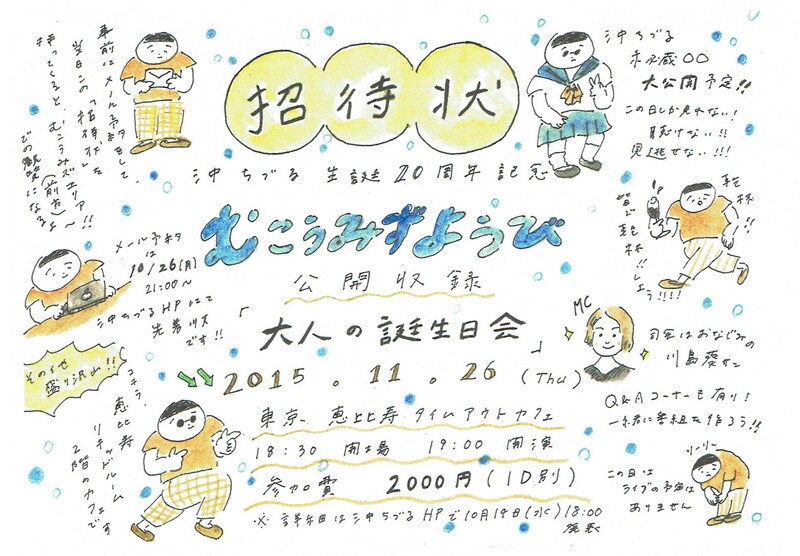 招待状
沖ちづる 生誕20周年記念
むこうみずようび
公開収録
「大人の誕生日会」
2015.11.26(Thu)
東京、恵比寿タイムアウトカフェ
18:30 開場 19:00 開演
参加費 2000円(1D別)
※詳細は沖ちづるHPで10月14日(水)18:00
発表
事前にメール予約をして、
当日この「招待状」を
持ってくると、むこうみずエリア
での観覧になるよ〜!!
(前方)
メール予約
は
10/26(月)
21:00〜
沖ちづるHPにて
先着順
です!!
その他
盛り沢山!!
コチラ、
恵比寿
リキッドルーム
2階のカフェです
沖ちづる
未収蔵〇〇
大公開予定!!
この日しか見れない!
聞けない!!
見逃せない!!!
乾杯!!
皆で
乾杯
しよう!!!!
MC
司会はおなじみの
川島葵サン
Q&Aコーナーも有り!
一緒に番組を作ろう!!
ソーリー
この日は
ライブの予定は
ありません